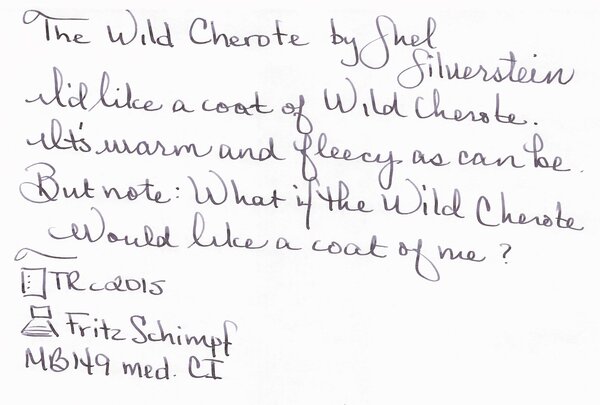 The Wild Cherote by Shel
Silverstein
I'd like a coat of Wild Cherote.
It's warm and fleecy as can be.
But note: What if the Wild Cherote
Would like a coat of me?
TR c2015
Fritz Schimpf
MB149 med. CI